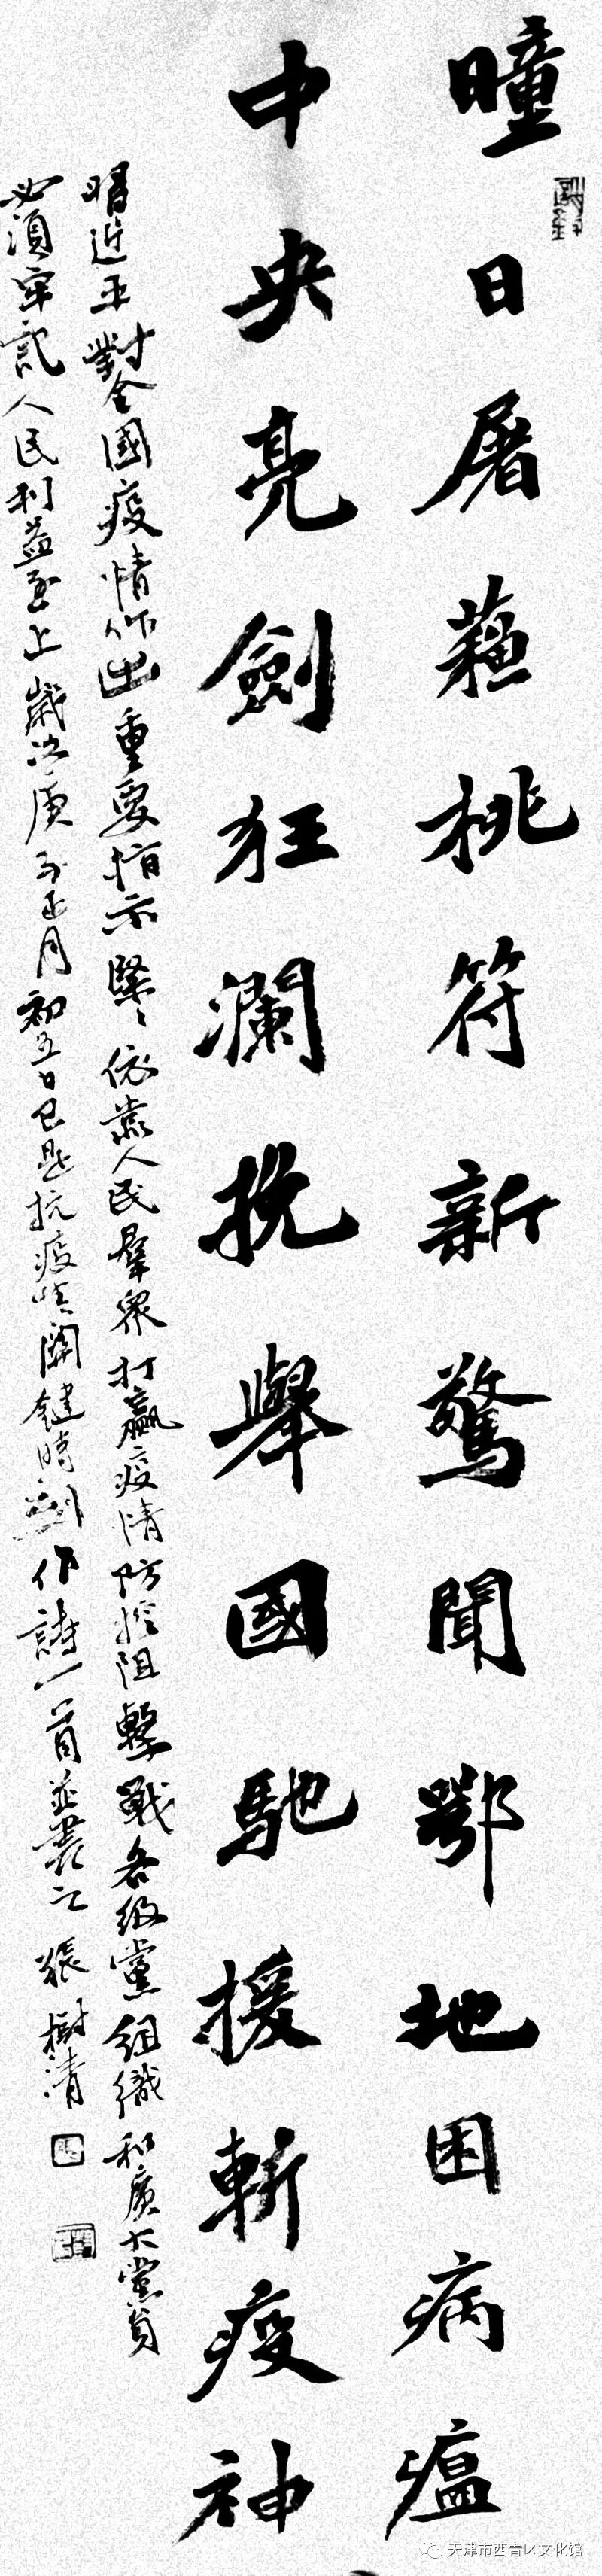 曈日屠蘓桃符新驚聞鄂地困病瘟
中央亮劍狂瀾挽舉國馳援斬疫神
習近平對全國疫情作出重要指示緊緊依靠人民羣眾打贏疫情防控阻擊戰各級黨組織和廣大黨員
必須牢記人民利益至上歲次庚子正月初五日已是抗疫情關鍵時刻作詩一首並書之 張樹清
天津市西青区文化馆